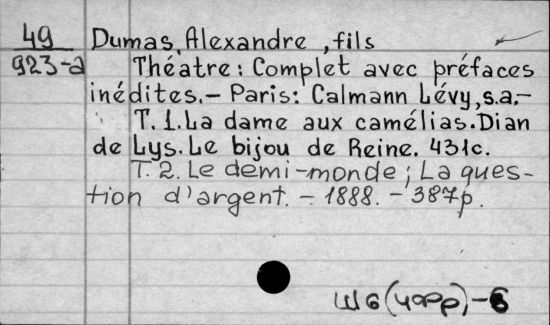 49 Dumas, Alexandre, fils
923-a Théatre: Complet avec préfaces
inédites.- Paris: Calmann Lévy, s.a.-
T. 1. La dame aux camélias. Dian
de Lys. Le bijou de Reine. 431c.
T. 2. Le demi-monde; La ques-
tion d'argent. - 1888. - 387p.